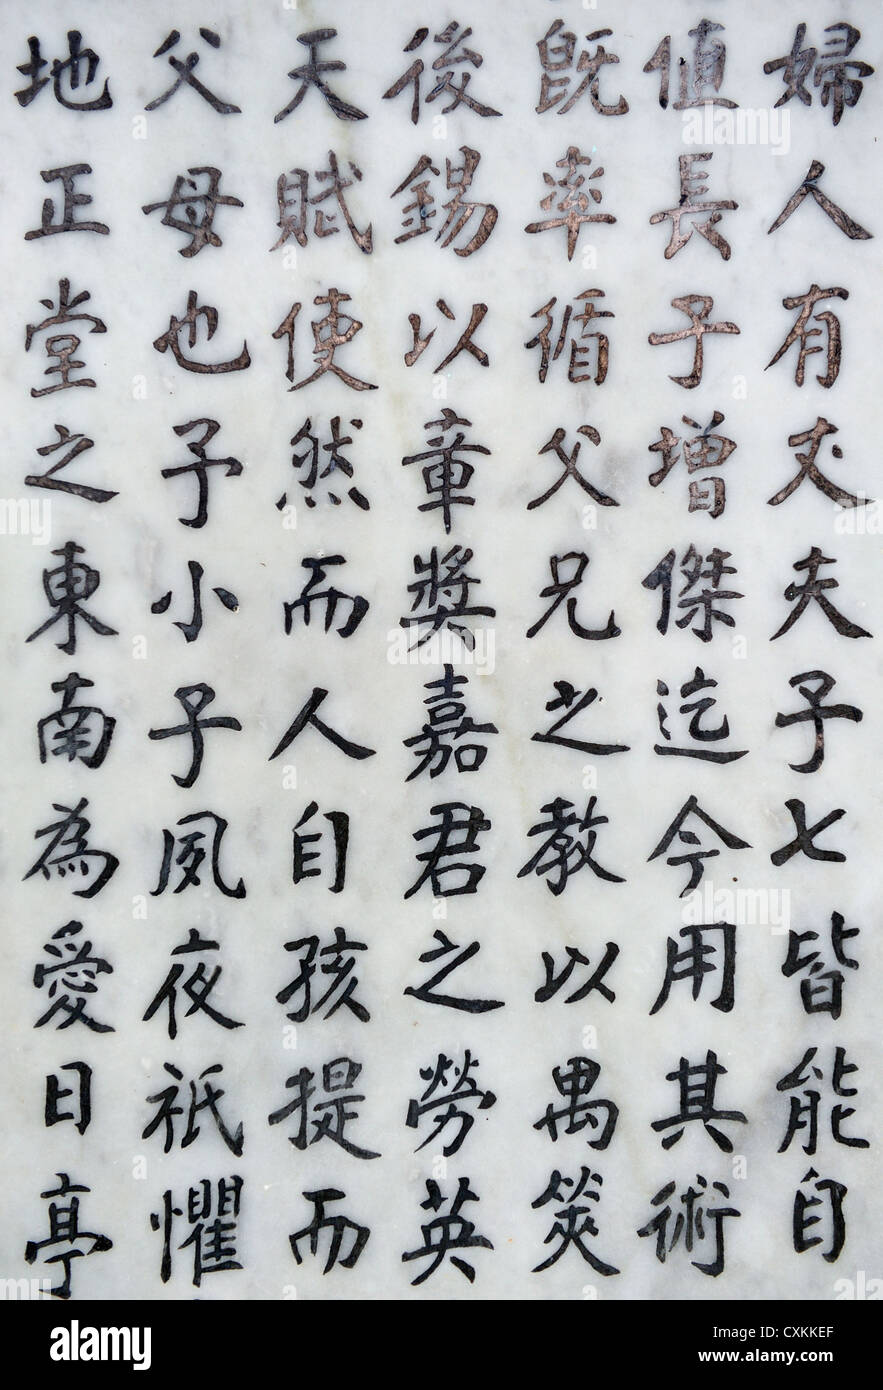 婦人有丈夫子七皆能自
值長子增傑迄今用其術
既率循父兄之教以禺筴
後錫以章獎嘉君之勞英
天賦使然而人自孩提而
父母也予小子夙夜祇懼
地正堂之東南為愛日亭
alamy
Image ID: CXKKEF
www.alamy.com